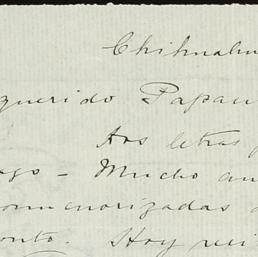 Chihuahu
querido Papau
Dos letras p
ago - Mucho an
onmemorizadas
onto. Hoy reci